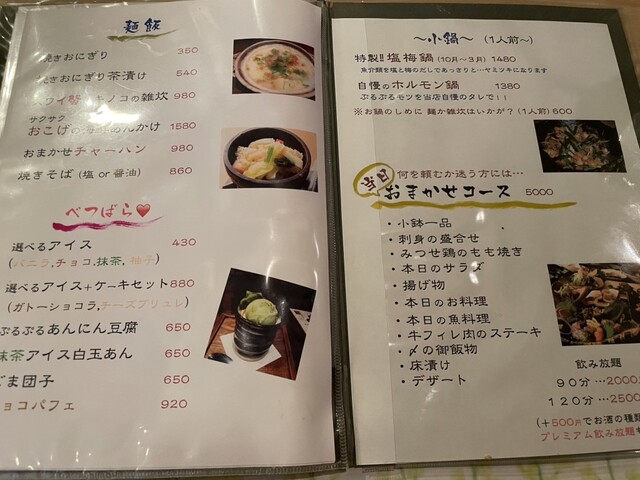 麺飯
焼きおにぎり 350
焼きおにぎり茶漬け 540
ズワイ蟹とキノコの雑炊 980
サクサク
おこげの海鮮あんかけ 1580
おまかせチャーハン 980
焼きそば (塩 or 醤油) 860
べつばら♥
選べるアイス 430
(バニラ,チョコ,抹茶,柚子)
選べるアイス+ケーキセット 880
(ガトーショコラ,チーズブリュレ)
ぷるぷるあんにん豆腐 650
抹茶アイス白玉あん 650
ごま団子 650
チョコパフェ 920
〜小鍋〜 (1人前〜)
特製!! 塩梅鍋 (10月〜3月) 1480
魚介類を塩と梅のだしであっさりと…ヤミツキになります
自慢のホルモン鍋 1380
ぷるぷるモツを当店自慢のタレで!!
※お鍋のしめに 麺か雑炊はいかが? (1人前) 600
何を頼むか迷う方には…
当日
おまかせコース 5000
・小鉢一品
・刺身の盛合せ
・みつせ鶏のもも焼き
・本日のサラダ
・揚げ物
・本日のお料理
・本日の魚料理
・牛フィレ肉のステーキ
・〆の御飯物
・床漬け
・デザート
飲み放題
90分 …2000
120分 …2500
(+500円でお酒の種類
プレミアム飲み放題